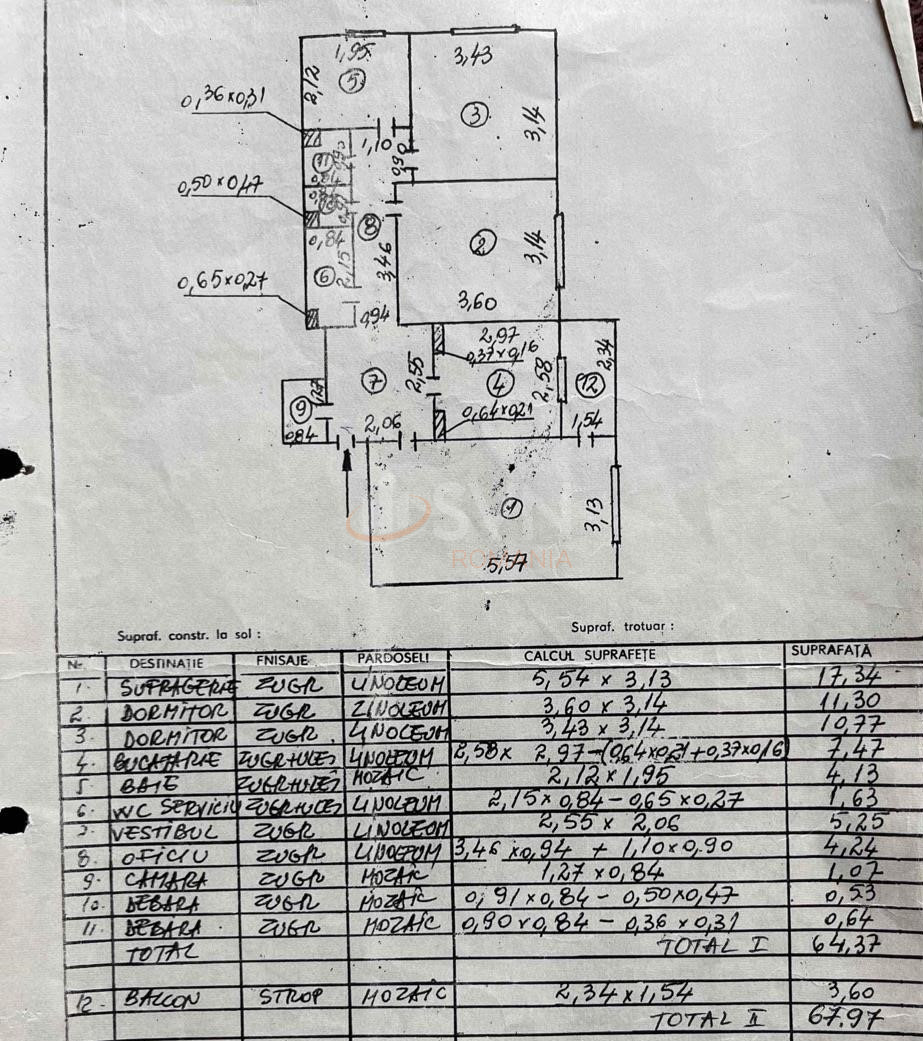 1,95
3,43
2,12
5
0,36x0,31
3
3,14
1,10
0,90
11
0,90
0,84
0,50x0,47
8
2
3,14
0,84
6
2,15
3,46
0,65x0,27
3,60
0,94
2,97
0,37x0,16
2,34
7
2,55
4
2,58
12
9
1,27
0,84
2,06
0,64x0,21
1,54
1
3,13
SUN
ROMANIA
5,57
Supraf. constr. la sol :
Supraf. trotuar :
Nr. DESTINAȚIE FNISAJE PARDOSELI CALCUL SUPRAFEȚE SUPRAFAȚĂ
1. SUFRAGERIE ZUGR LINOLEUM 5,54 x 3,13 17,34
2. DORMITOR ZUGR LINOLEUM 3,60 x 3,14 11,30
3. DORMITOR ZUGR. LINOLEUM 3,43 x 3,14 10,77
4. BUCATARIE ZUGR+ULEI LINOLEUM 2,58 x 2,97-(0,64x0,21+0,37x0,16) 7,47
5. BAIE ZUGR+ULEI MOZAIC 2,12 x 1,95 4,13
6. WC SERVICIU ZUGR+ULEI LINOLEUM 2,15 x 0,84 - 0,65 x 0,27 1,63
7. VESTIBUL ZUGR LINOLEUM 2,55 x 2,06 5,25
8. OFICIU ZUGR LINOLEUM 3,46 x 0,94 + 1,10 x 0,90 4,24
9. CAMARA ZUGR MOZAIC 1,27 x 0,84 1,07
10. DEBARA ZUGR MOZAIC 0,91 x 0,84 - 0,50 x 0,47 0,53
11. DEBARA ZUGR MOZAIC 0,90 x 0,84 - 0,36 x 0,31 0,64
TOTAL TOTAL I 64,37
12. BALCON STROP MOZAIC 2,34 x 1,54 3,60
TOTAL II 67.97